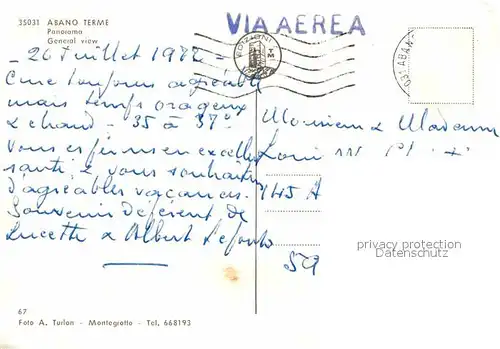 35031 ABANO TERME
Panorama
General view
VIA AEREA
- 26 Juillet 1972 -
Cure toujours agréable
mais temps orageux
& chaud - 35 à 37°.
Vous espérons en excellente
santé & vous souhaitons
d'agréables vacances.
Souvenir déférent de
Lucette & Albert
Monsieur & Madame
Louis
145 A
privacy protection
Datenschutz
67
Foto A. Turlon - Montegrotto - Tel. 668193